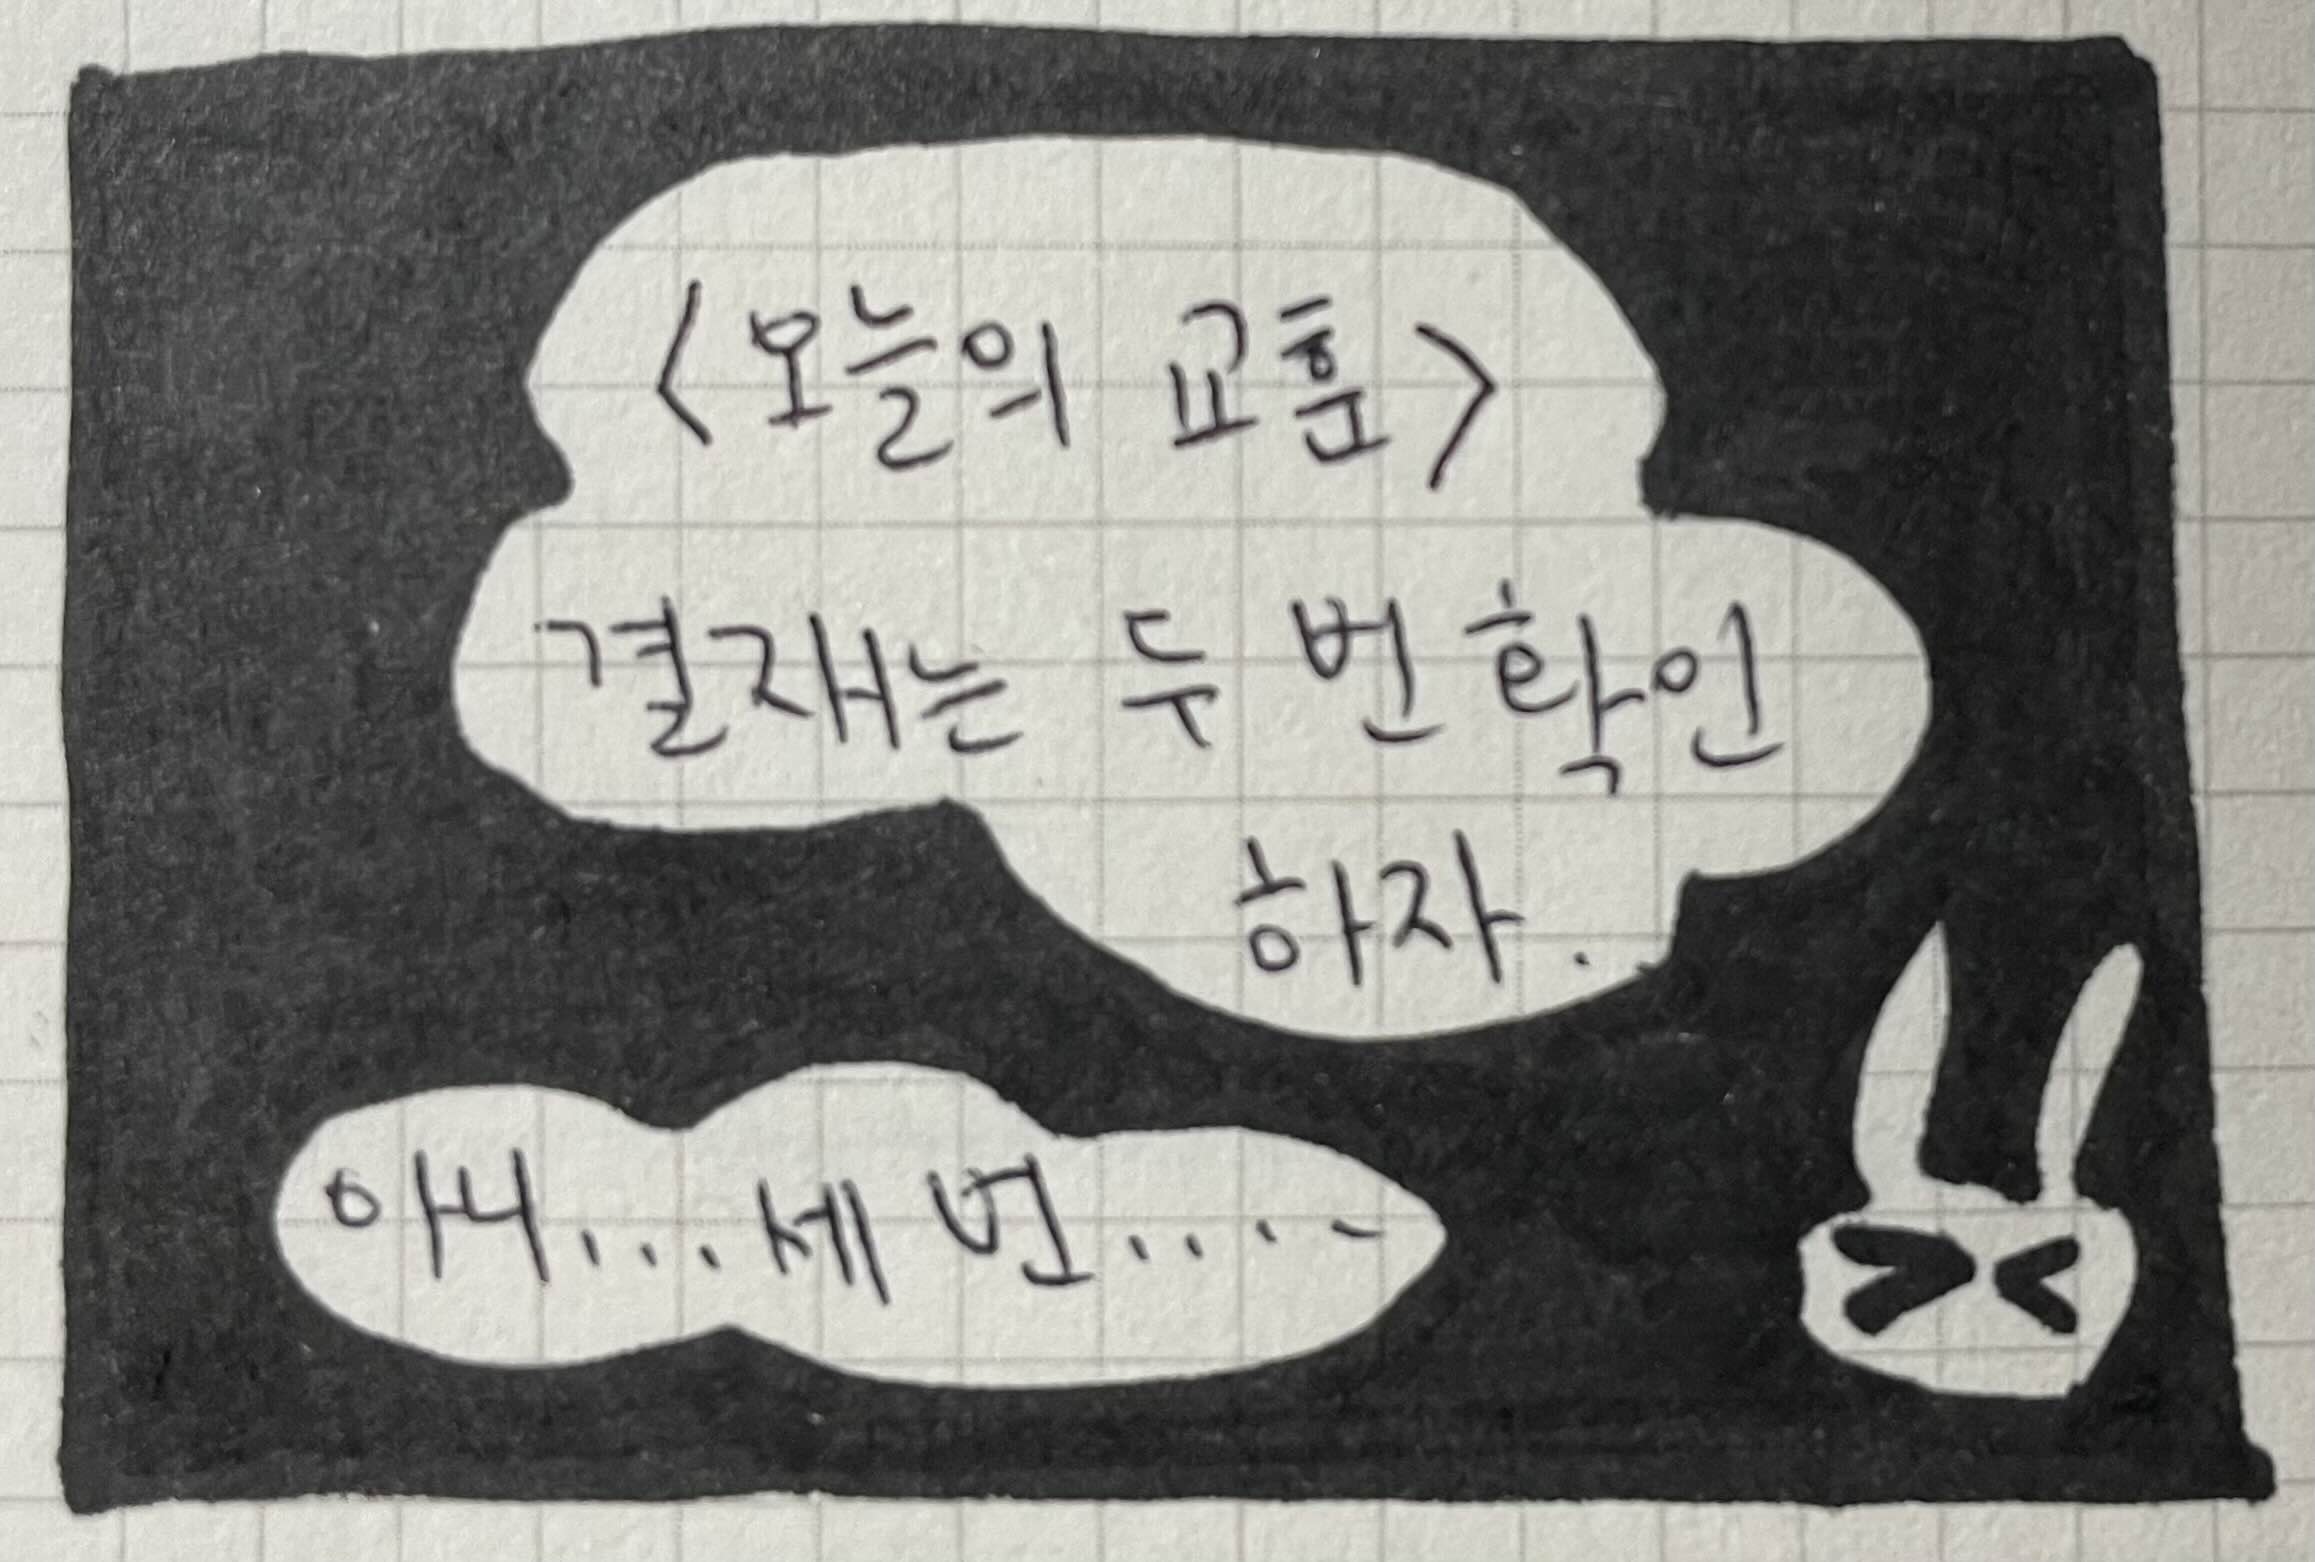 <오늘의 교훈>
결재는 두 번 확인
하자.
아니... 세 번....